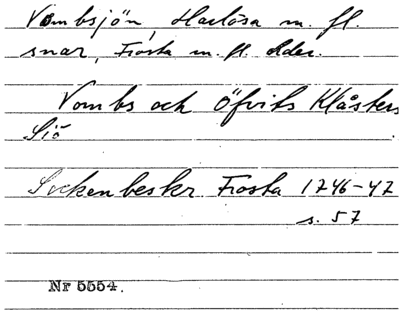 Vombsjön, Harlösa m. fl.
snar, Frosta m. fl. hder.
Vombs och Öfvits Klåsters
Siö
Sockenbeskr Frosta 1746-47
s. 57
Nr 5554.